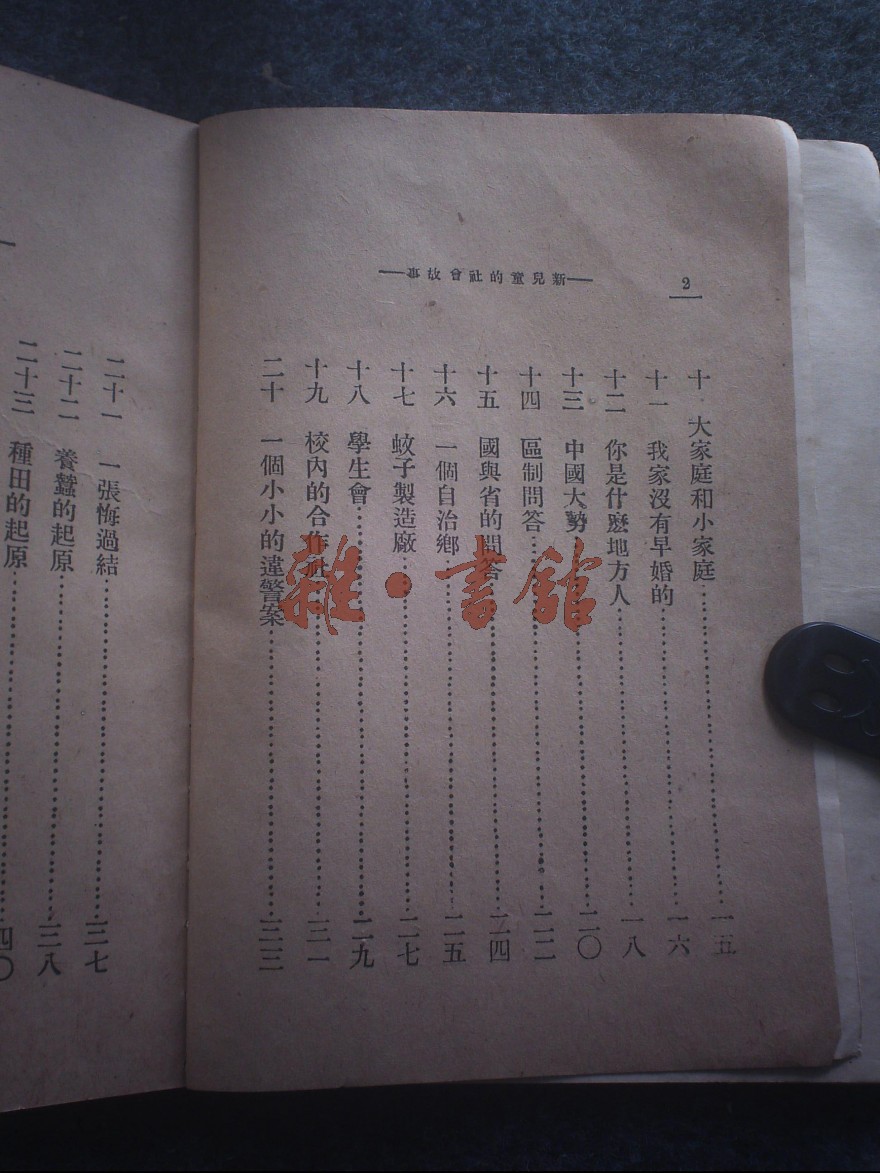 2
—新兒童的社會故事—
十 大家庭和小家庭……一五
十一 我家沒有早婚的……一六
十二 你是什麽地方人……一八
十三 中國大勢……二〇
十四 區制問答……二二
十五 國與省的問答……二四
十六 一個自治鄉……二五
十七 蚊子製造廠……二七
十八 學生會……二九
十九 校內的合作社……三一
二十 一個小小的違警案……三三
二十一 一張悔過結……三七
二十二 養蠶的起原……三八
二十三 種田的起原……四〇
雜·書館